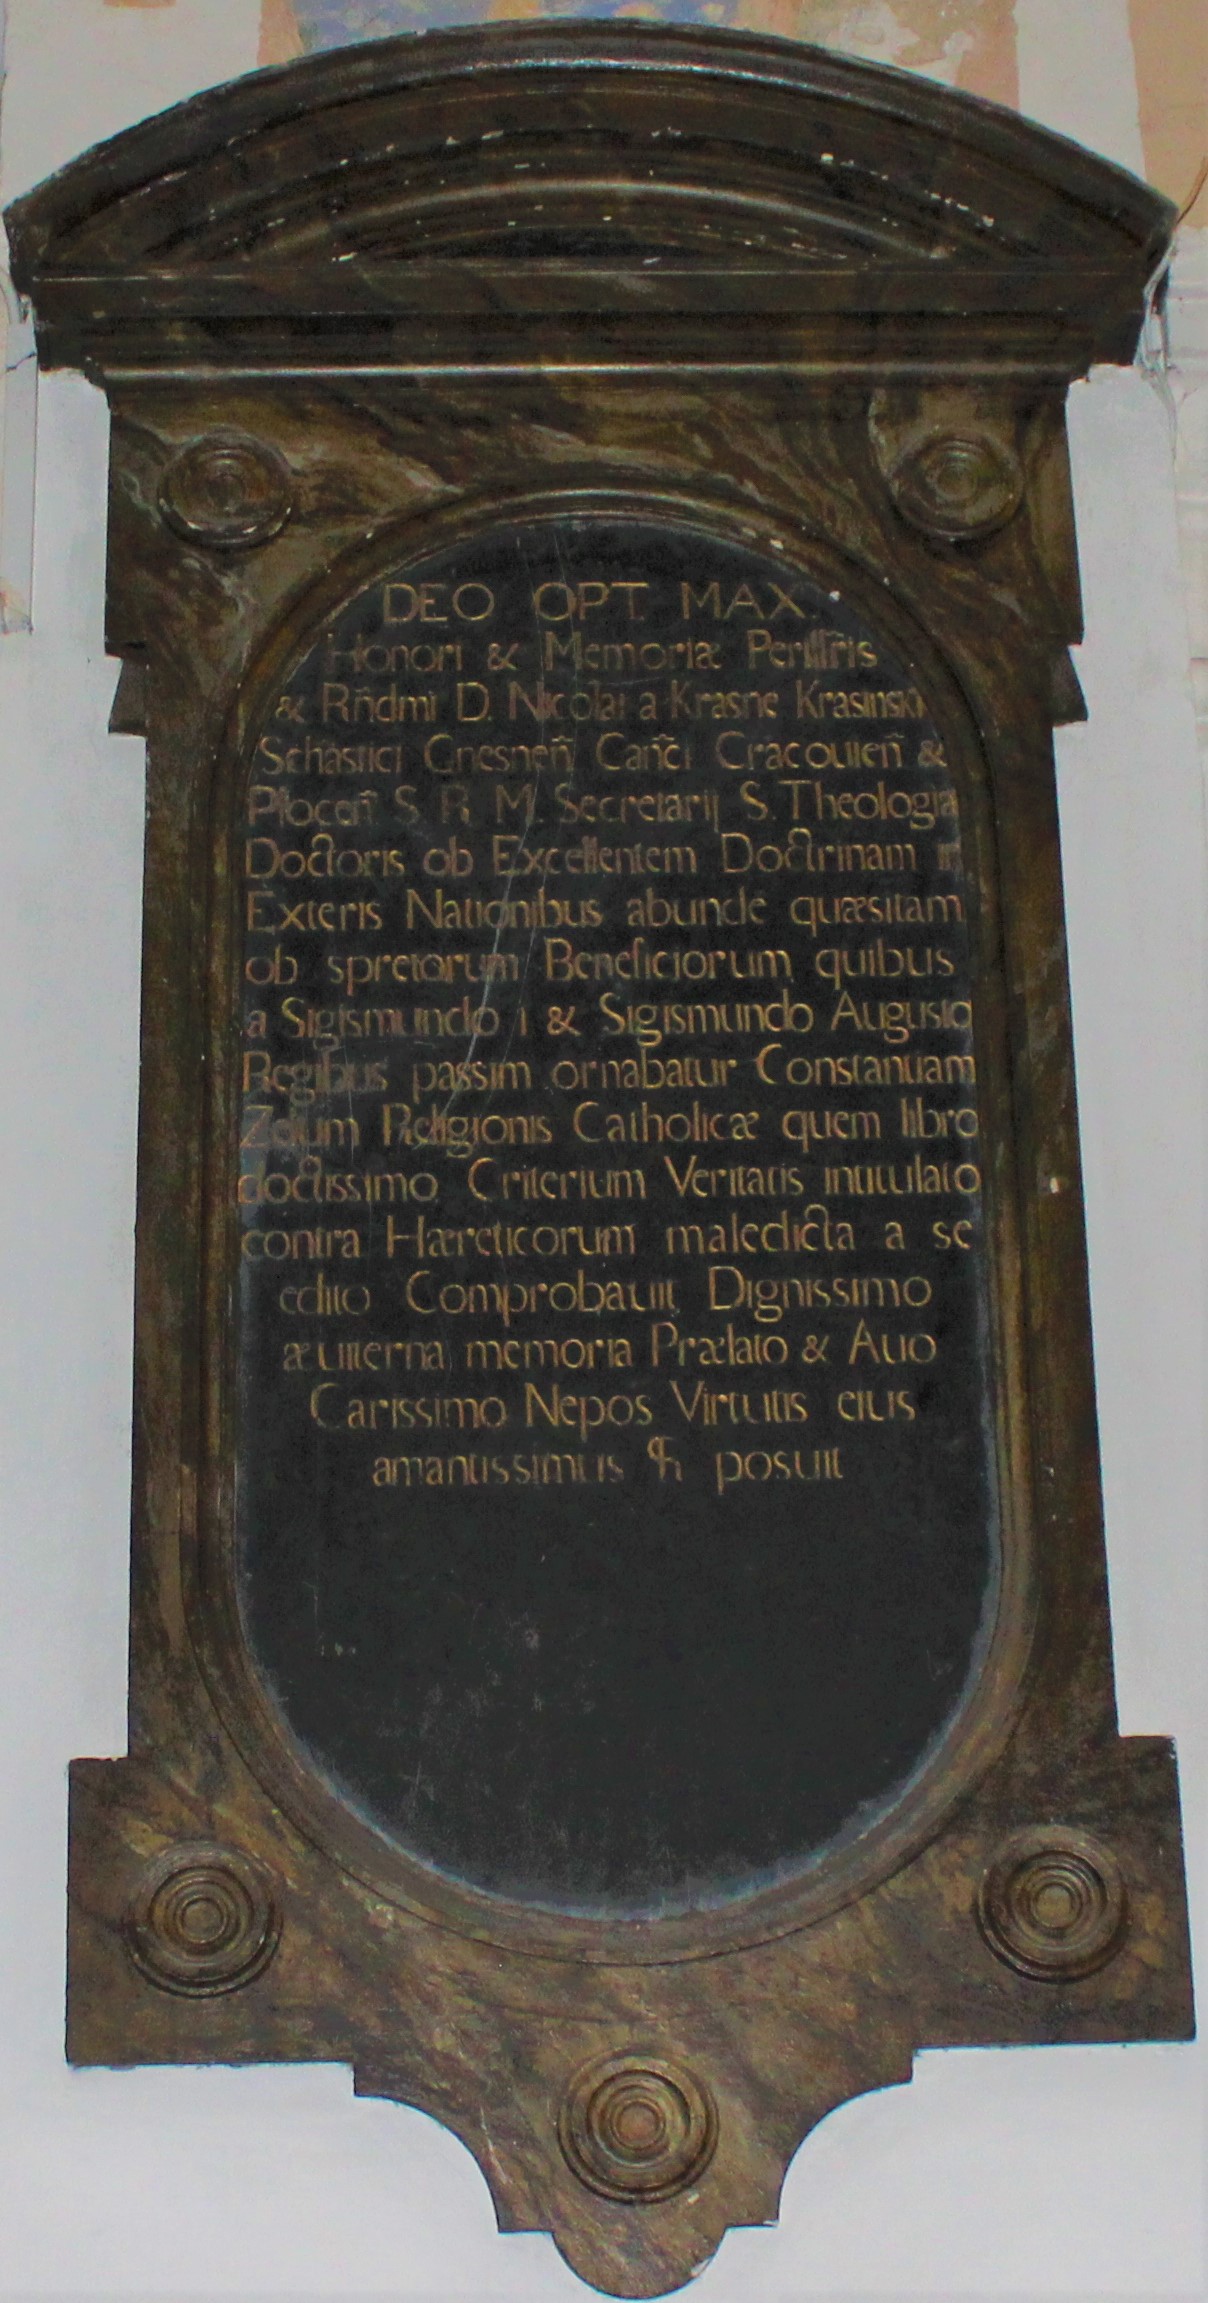 DEO OPT. MAX.
Honori & Memoriæ Perillr̃is
& Rñdmi D. Nicolai a Krasne Krasinski
Schastici Gnesneñ Cañci Cracouieñ &
Ploceñ S. R. M. Secretarij S. Theologia
Doctoris ob Excellentem Doctrinam in
Exteris Nationibus abunde quæsitam
ob spretorum Beneficiorum quibus
a Sigismundo I & Sigismundo Augusto
Regibus passim ornabatur Constantiam
Zelum Religionis Catholicæ quem libro
doctissimo Criterium Veritatis intitulato
contra Hæreticorum maledicta a se
edito Comprobauit, Dignissimo
æuiterna memoria Prælato & Auo
Carissimo Nepos Virtutis eius
amantissimus posuit